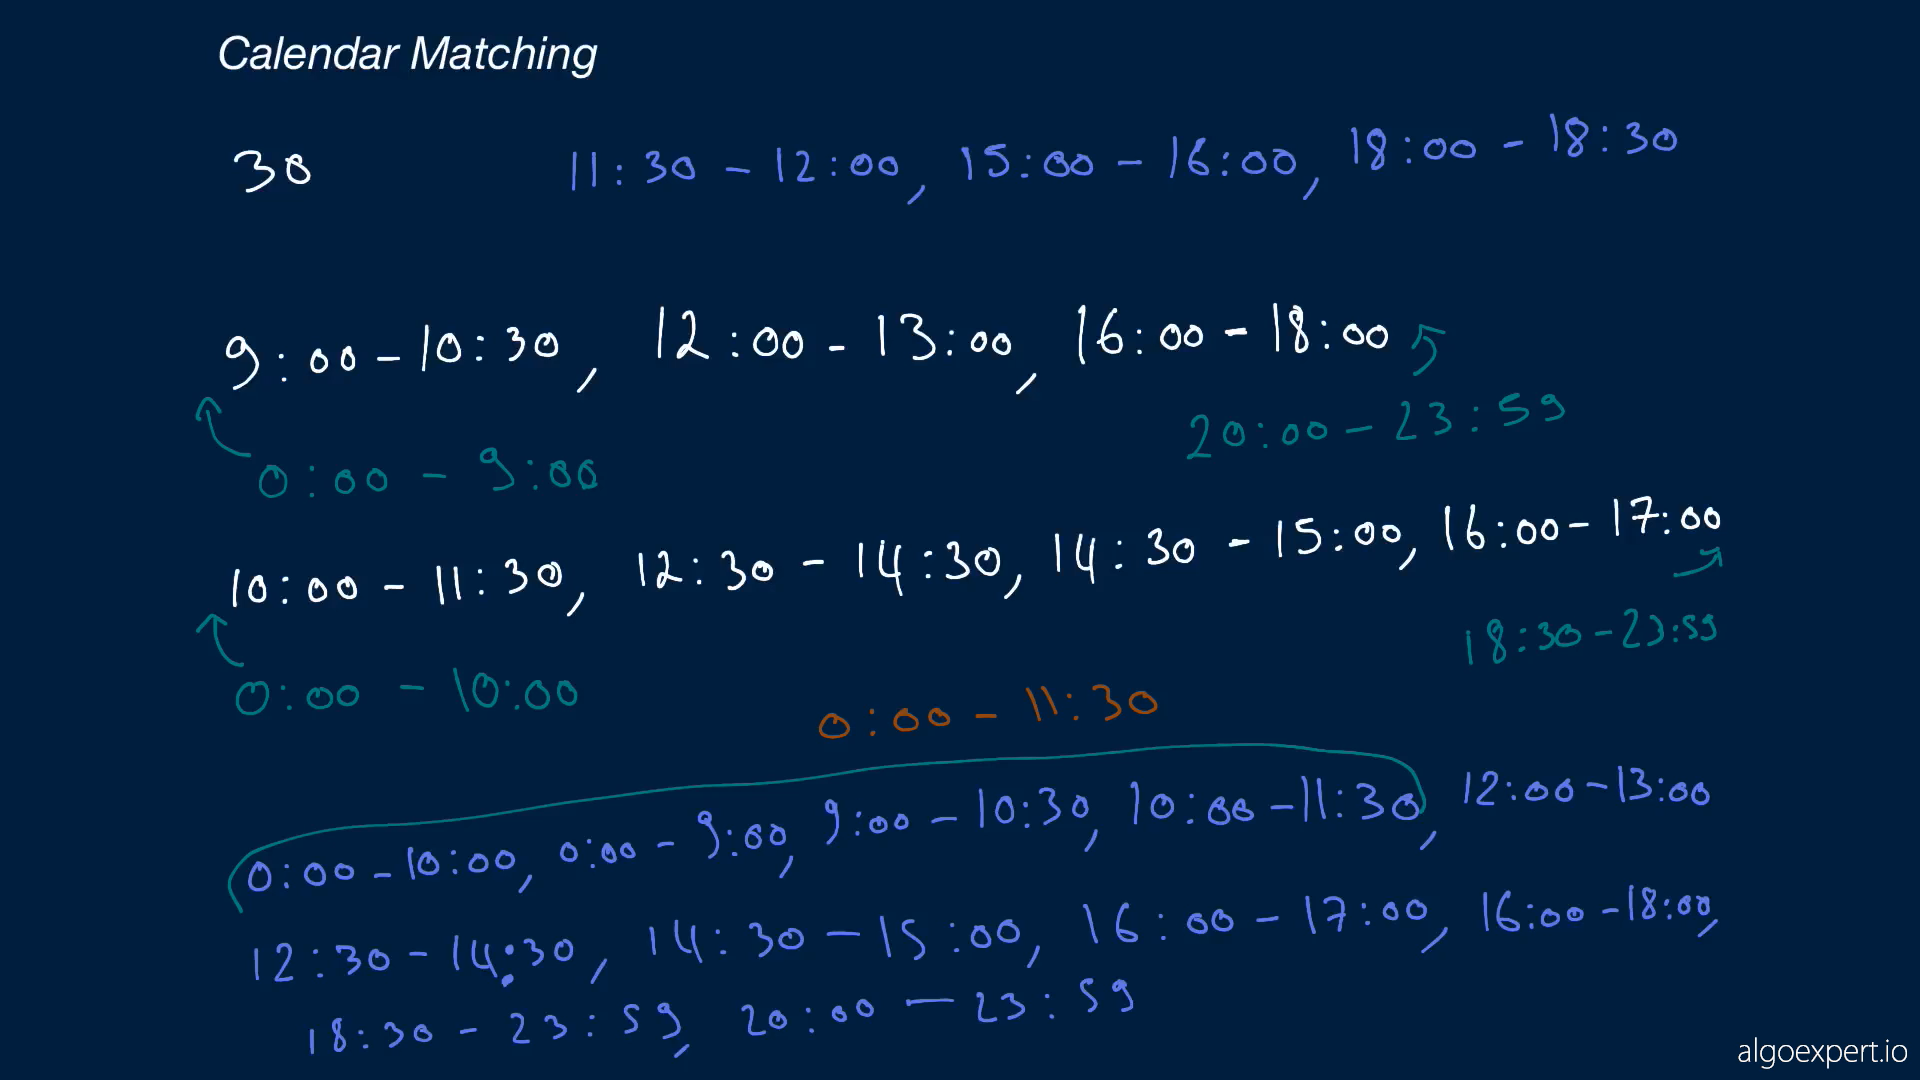 Calendar Matching
30 11:30 - 12:00, 15:00 - 16:00, 18:00 - 18:30
9:00 - 10:30, 12:00 - 13:00, 16:00 - 18:00
20:00 - 23:59
0:00 - 9:00
10:00 - 11:30, 12:30 - 14:30, 14:30 - 15:00, 16:00 - 17:00
18:30 - 23:59
0:00 - 10:00
0:00 - 11:30
0:00 - 10:00, 0:00 - 9:00, 9:00 - 10:30, 10:00 - 11:30, 12:00 - 13:00
12:30 - 14:30, 14:30 - 15:00, 16:00 - 17:00, 16:00 - 18:00,
18:30 - 23:59, 20:00 - 23:59
algoexpert.io